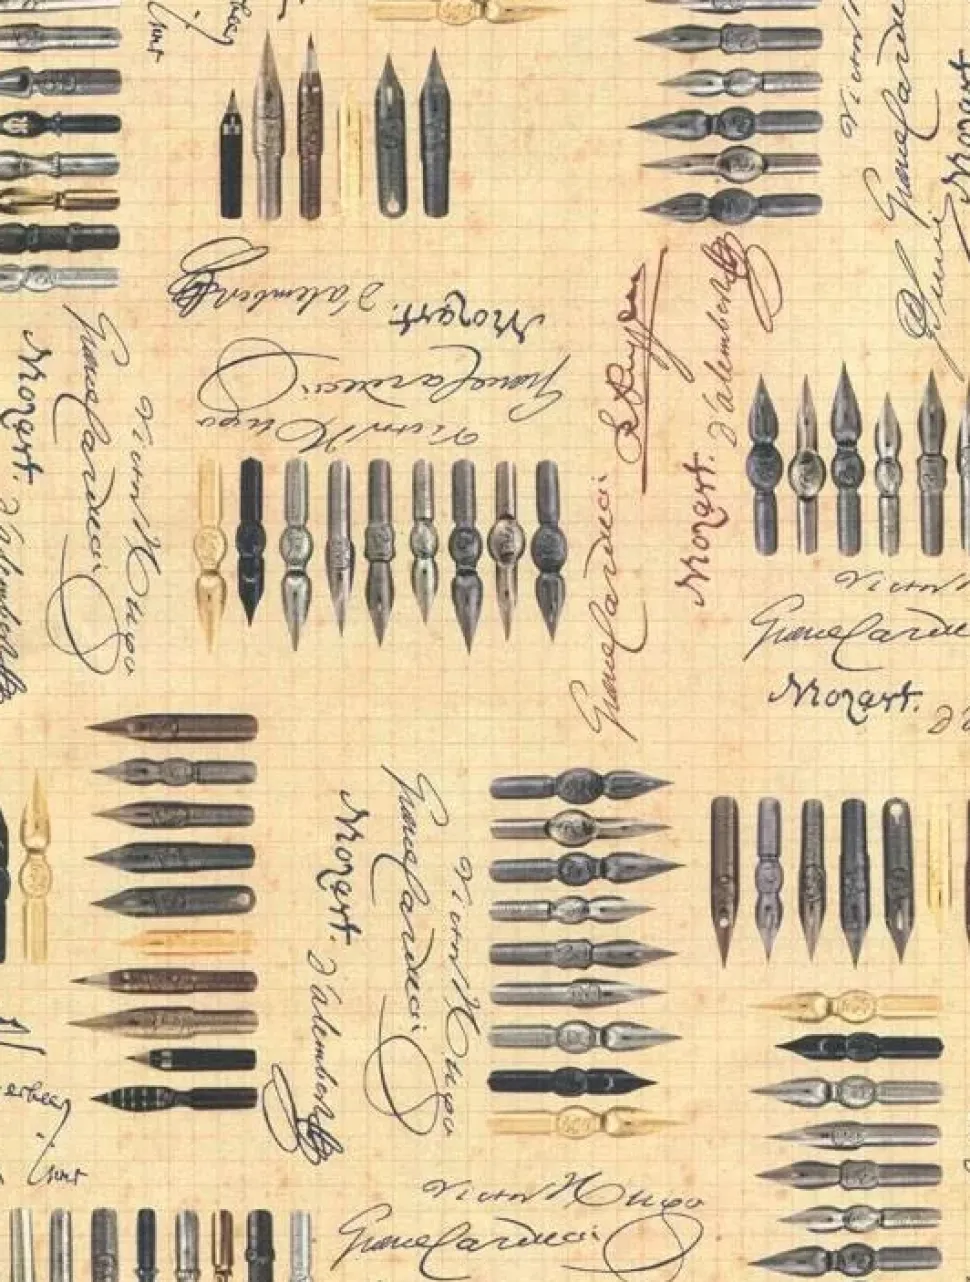 Victor
Giosuè Carducci
Mozart.
d'alembert
Mozart.
Giosuè Carducci
Victor Hugo
d'alembert
Mozart.
Giosuè Carducci
Giosuè Carducci
Mozart.
Victor Hugo
d'alembert
Victor
Giosuè Carduc
Mozart.
d'a
Giosuè Carducci
Mozart.
Victor Hugo
d'alembert
Victor Hugo
Giosuè Carducci